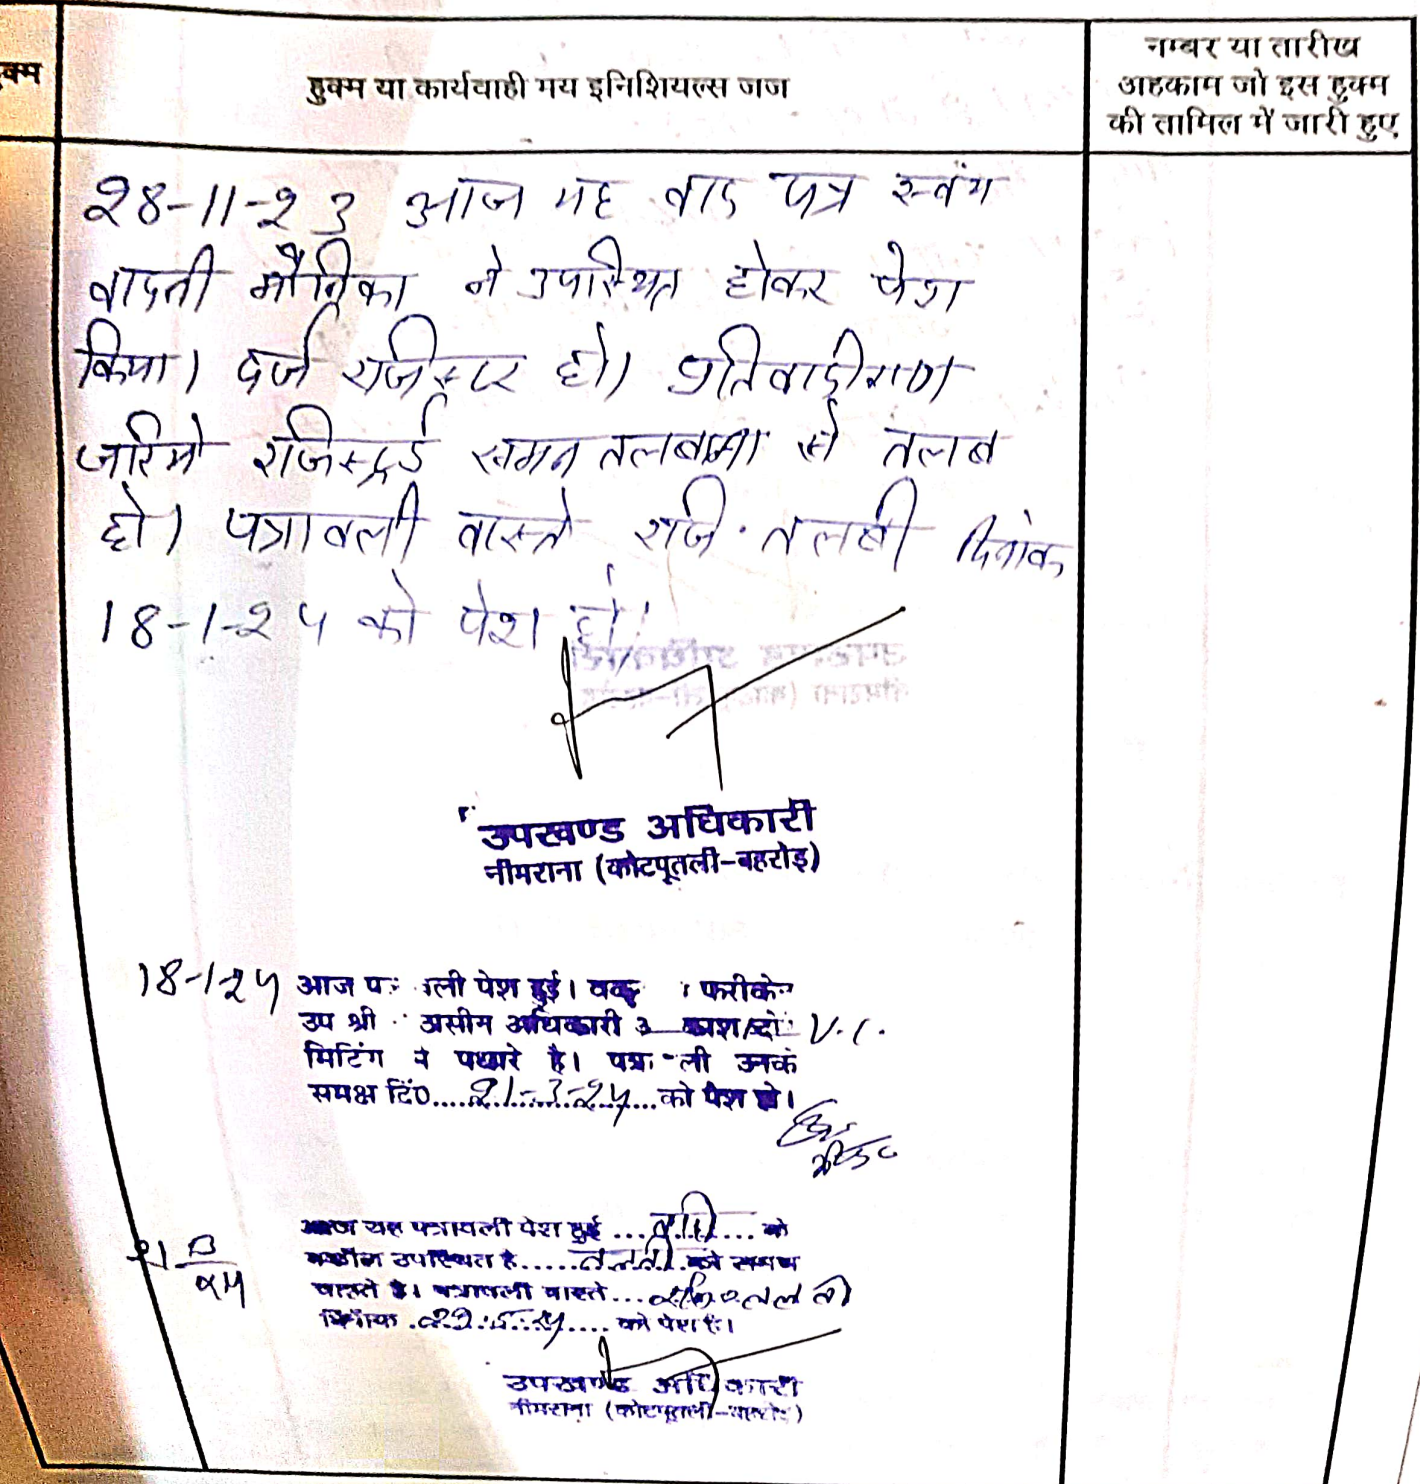 हुक्म
हुक्म या कार्यवाही मय इनिशियल्स जज
नम्बर या तारीख
अहकाम जो इस हुक्म
की तामिल में जारी हुए
28-11-23 आज यह वाद पत्र स्वंय
वादनी मौनिका ने उपस्थित होकर पेश
किया। दर्ज रजिस्टर हो। प्रतिवादीगण
जरिये रजिस्टर्ड समन तलबाना से तलब
हो। पत्रावली वास्ते रजि. तलबी दिनांक
18-1-24 को पेश हो।
उपखण्ड अधिकारी
नीमराना (कोटपूतली-बहरोड़)
18-1-24 आज ली पेश हुई। फरीकेन
उप श्री असीम अधिकारी V.C.
मिटिंग में पधारे है। उनके
समक्ष दि0 21-3-24 को पेश हो।
आज यह पत्रावली पेश हुई को
21 3/24
वकील उपस्थित है तलबी समय
चाहते है। पत्रावली वास्ते तलबी
दिनांक को पेश हो।
उपखण्ड अधिकारी
नीमराना (कोटपूतली-बहरोड़)